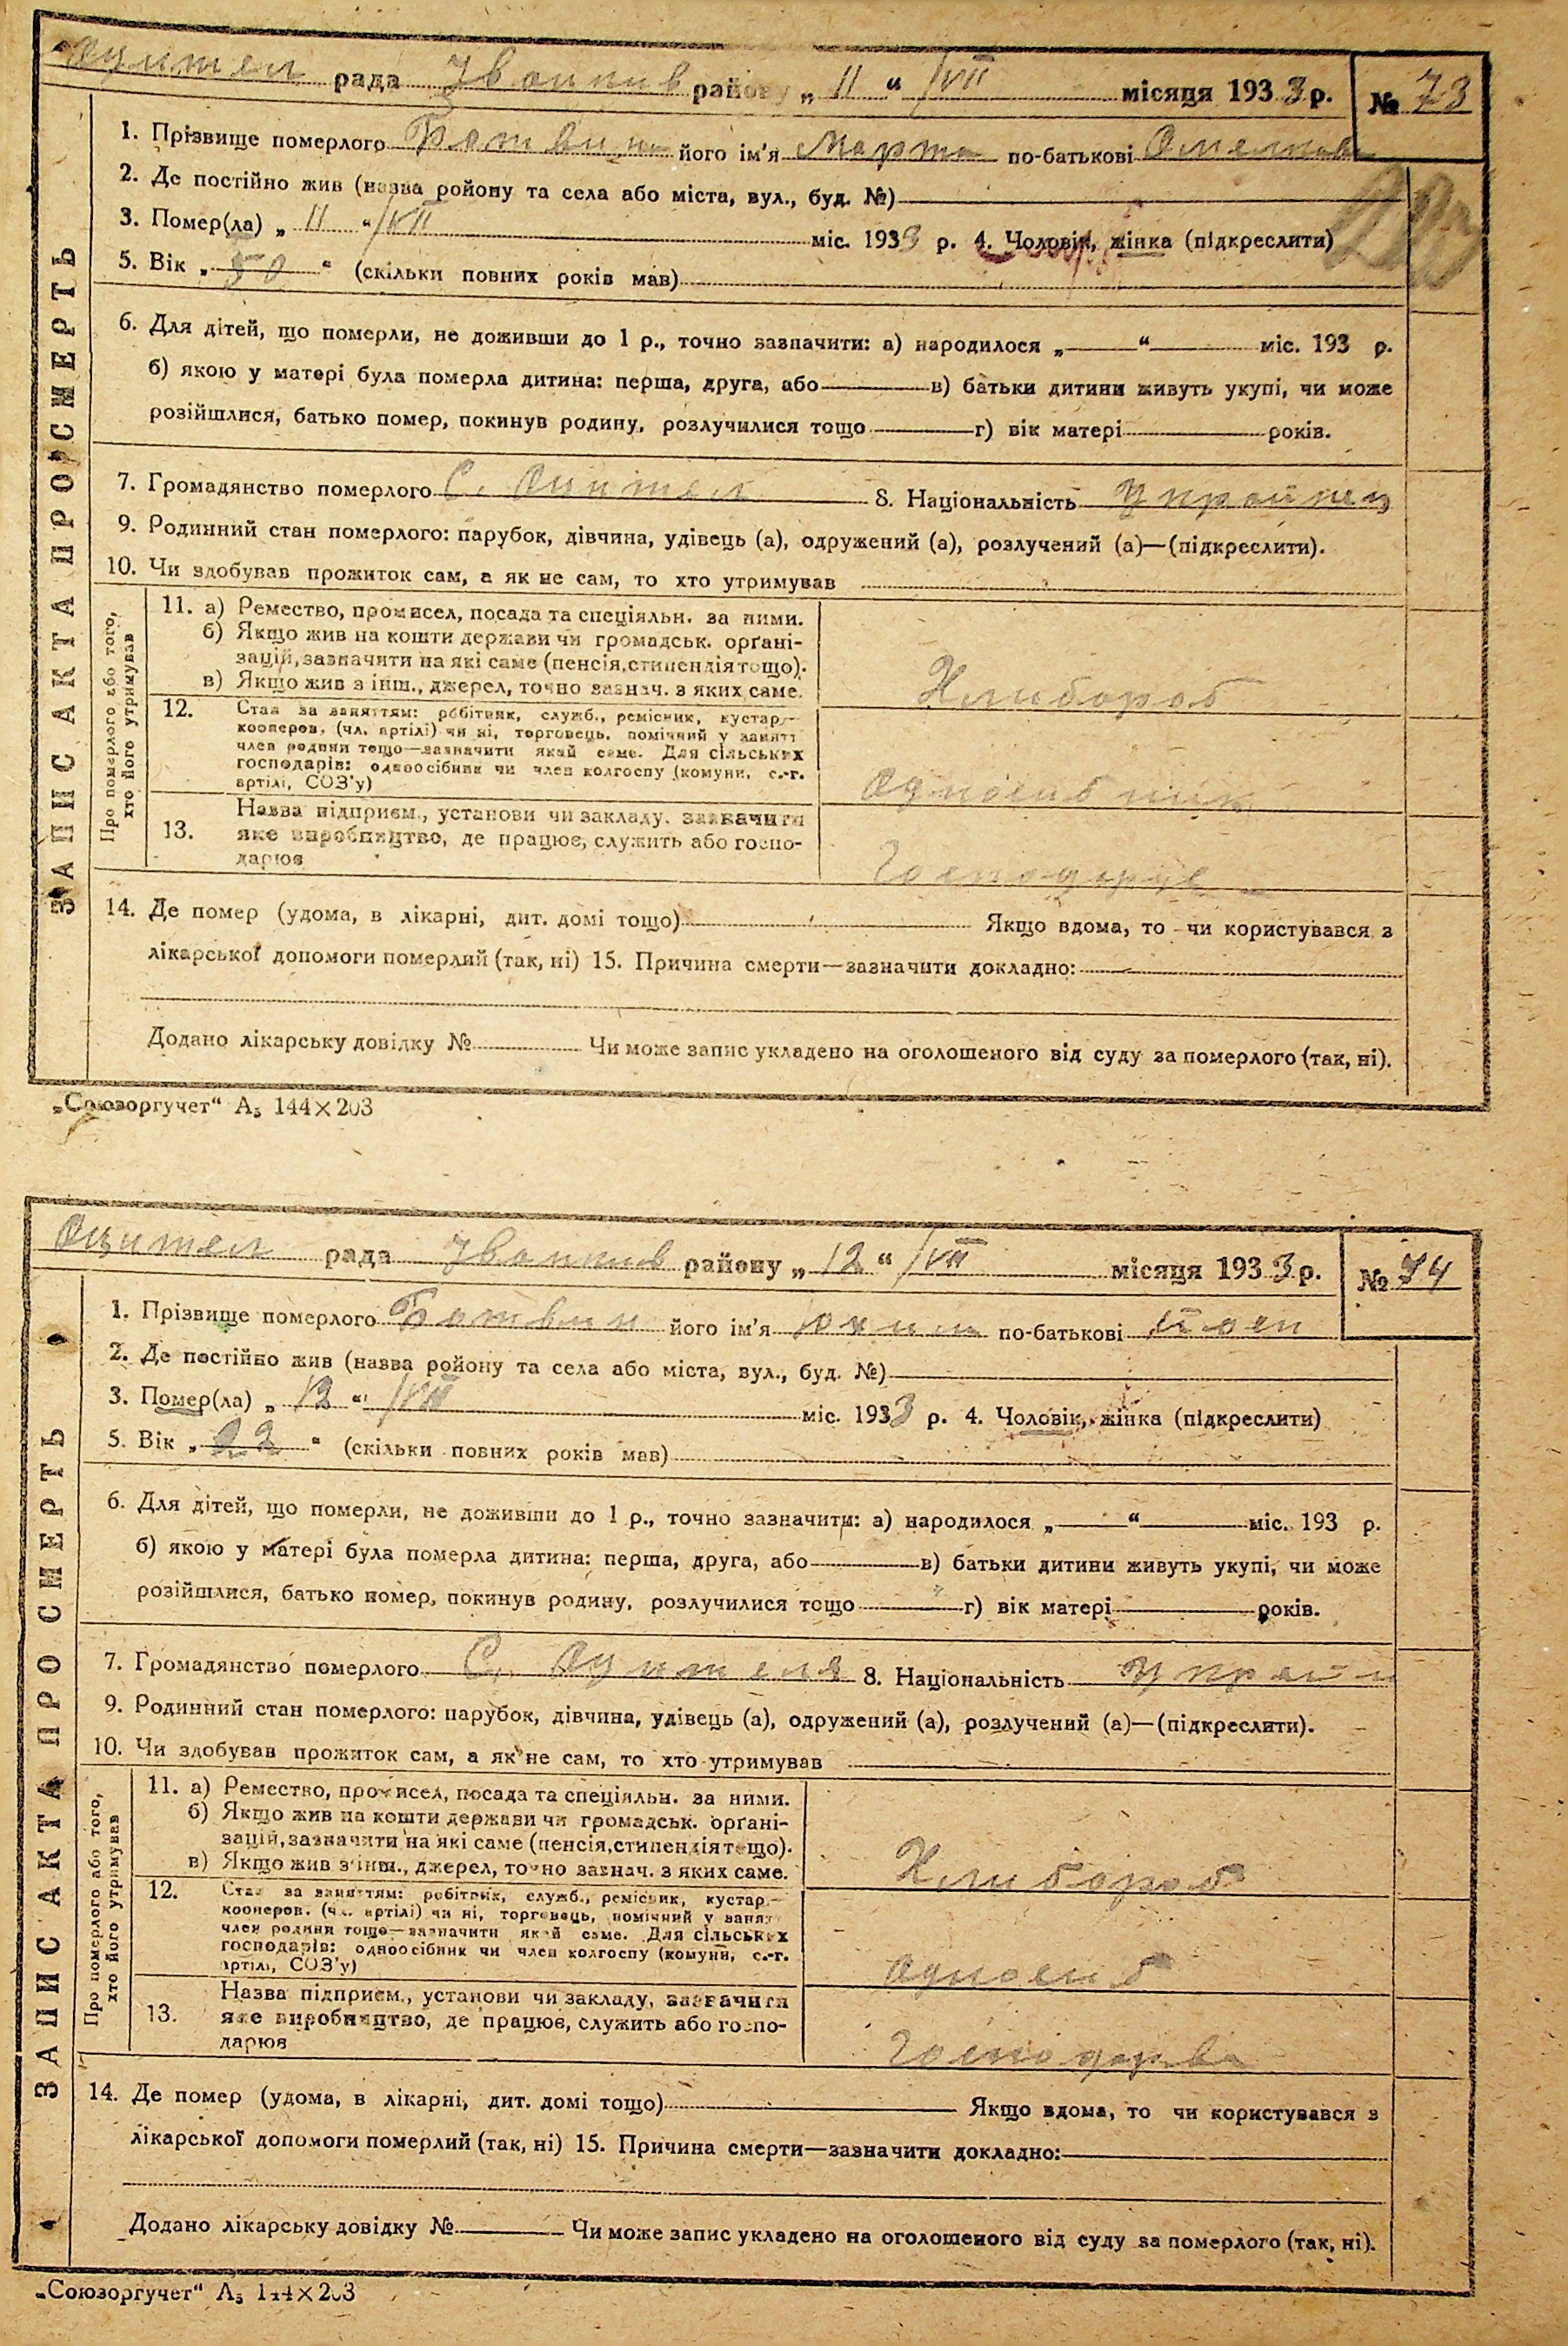 Оцител рада Іванків району „ 11 “ /VII місяця 1933 р. № 73
1. Прізвище померлого Ботвина його ім'я Марта по-батькові
2. Де постійно жив (назва ройону та села або міста, вул., буд. №)
3. Помер(ла) „ 11 “ /VII міс. 1933 р. 4. Чоловік, жінка (підкреслити)
5. Вік „ 50 “ (скільки повних років мав)
6. Для дітей, що померли, не доживши до 1 р., точно зазначити: а) народилося „ “ міс. 193 р.
б) якою у матері була померла дитина: перша, друга, або в) батьки дитини живуть укупі, чи може
розійшлися, батько помер, покинув родину, розлучилися тощо г) вік матері років.
7. Громадянство померлого С. Оцител 8. Національність Українец
9. Родинний стан померлого: парубок, дівчина, удівець (а), одружений (а), розлучений (а)—(підкреслити).
10. Чи здобував прожиток сам, а як не сам, то хто утримував
ЗАПИС АКТА ПРО СМЕРТЬ
Про померлого або того,
хто його утримував
11. а) Ремество, промисел, посада та спеціяльн. за ними.
б) Якщо жив на кошти держави чи громадськ. орґані-
зацій, зазначити на які саме (пенсія, стипендія тощо).
в) Якщо жив з інш., джерел, точно зазнач. з яких саме.
Хлибороб
12. Стан за заняттям: робітник, служб., ремісник, кустар,-
кооперов. (чл. артілі) чи ні, торговець, помічний у занятт
член родини тощо—зазначити який саме. Для сільських
господарів: одноосібник чи член колгоспу (комуни, с.-г.
артілі, СОЗ'у)
Односибник
13. Назва підприєм., установи чи закладу, зазначити
яке виробництво, де працює, служить або госпо-
дарює
Господарує
14. Де помер (удома, в лікарні, дит. домі тощо) Якщо вдома, то чи користувався з
лікарської допомоги померлий (так, ні) 15. Причина смерти—зазначити докладно:
Додано лікарську довідку № Чи може запис укладено на оголошеного від суду за померлого (так, ні).
„Союзоргучет“ А₅ 144×203
Оцител рада Іванків району „ 12 “ /VII місяця 1933 р. № 74
1. Прізвище померлого Ботвин його ім'я Юхим по-батькові
2. Де постійно жив (назва ройону та села або міста, вул., буд. №)
3. Помер(ла) „ 12 “ /VII міс. 1933 р. 4. Чоловік, жінка (підкреслити)
5. Вік „ 22 “ (скільки повних років мав)
6. Для дітей, що померли, не доживши до 1 р., точно зазначити: а) народилося „ “ міс. 193 р.
б) якою у матері була померла дитина: перша, друга, або в) батьки дитини живуть укупі, чи може
розійшлися, батько помер, покинув родину, розлучилися тощо г) вік матері років.
7. Громадянство померлого С. Оцителя 8. Національність Україн
9. Родинний стан померлого: парубок, дівчина, удівець (а), одружений (а), розлучений (а)—(підкреслити).
10. Чи здобував прожиток сам, а як не сам, то хто утримував
ЗАПИС АКТА ПРО СМЕРТЬ
Про померлого або того,
хто його утримував
11. а) Ремество, промисел, посада та спеціяльн. за ними.
б) Якщо жив на кошти держави чи громадськ. орґані-
зацій, зазначити на які саме (пенсія, стипендія тощо).
в) Якщо жив з інш., джерел, точно зазнач. з яких саме.
Хлибороб
12. Стан за заняттям: робітник, служб., ремісник, кустар,-
кооперов. (чл. артілі) чи ні, торговець, помічний у занят
член родини тощо—зазначити який саме. Для сільських
господарів: одноосібник чи член колгоспу (комуни, с.-г.
артілі, СОЗ'у)
Односиб
13. Назва підприєм., установи чи закладу, зазначити
яке виробництво, де працює, служить або госпо-
дарює
Господарва
14. Де помер (удома, в лікарні, дит. домі тощо) Якщо вдома, то чи користувався з
лікарської допомоги померлий (так, ні) 15. Причина смерти—зазначити докладно:
Додано лікарську довідку № Чи може запис укладено на оголошеного від суду за померлого (так, ні).
„Союзоргучет“ А₅ 144×203